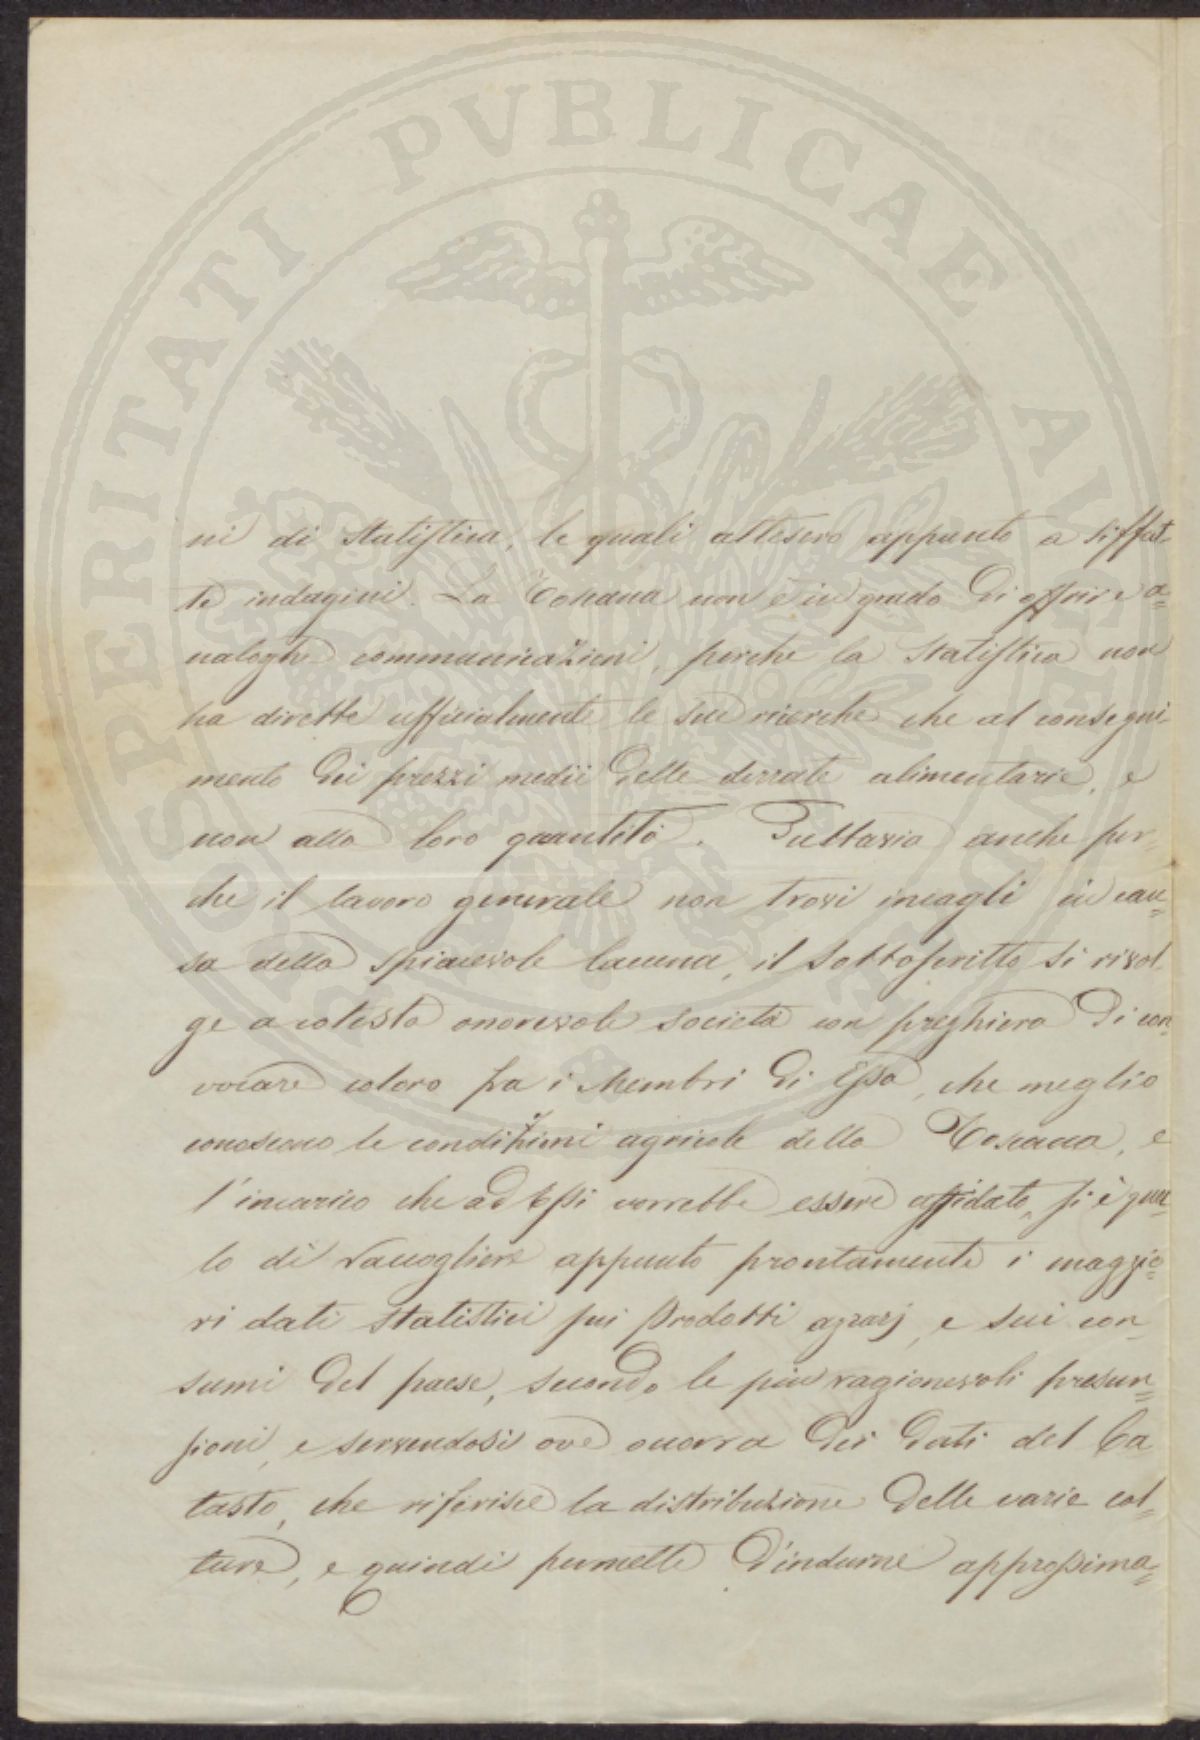 PROSPERITATI PVBLICAE AVGENDAE
ni di Statistica, le quali attesero appunto a siffat
te indagini. La Toscana non è in grado di offrire a=
naloghe communicazioni, perchè la Statistica non
ha dirette ufficialmente le sue ricerche che al consegui
mento dei prezzi medii delle derrate alimentarie, e
non alla loro quantità. Tuttavia anche per=
che il lavoro generale non trovi incagli in cau=
sa della spiacevole lacuna, il Sottoscritto si rivol
ge a cotesta onorevole Società con preghiera di con=
vocare coloro fra i Membri di Essa, che meglio
conoscono le condizioni agricole della Toscana, e
l'incarico che ad Essi vorrebbe essere affidato, si è quel
lo di raccogliere appunto prontamente i maggio=
ri dati statistici sui Prodotti agrarj, e sui con=
sumi del paese, secondo le più ragionevoli presun=
sioni, e servendosi ove occorra dei dati del Ca
tasto, che riferisce la distribuzione delle varie col=
ture, e quindi permette d'indurne approssima=